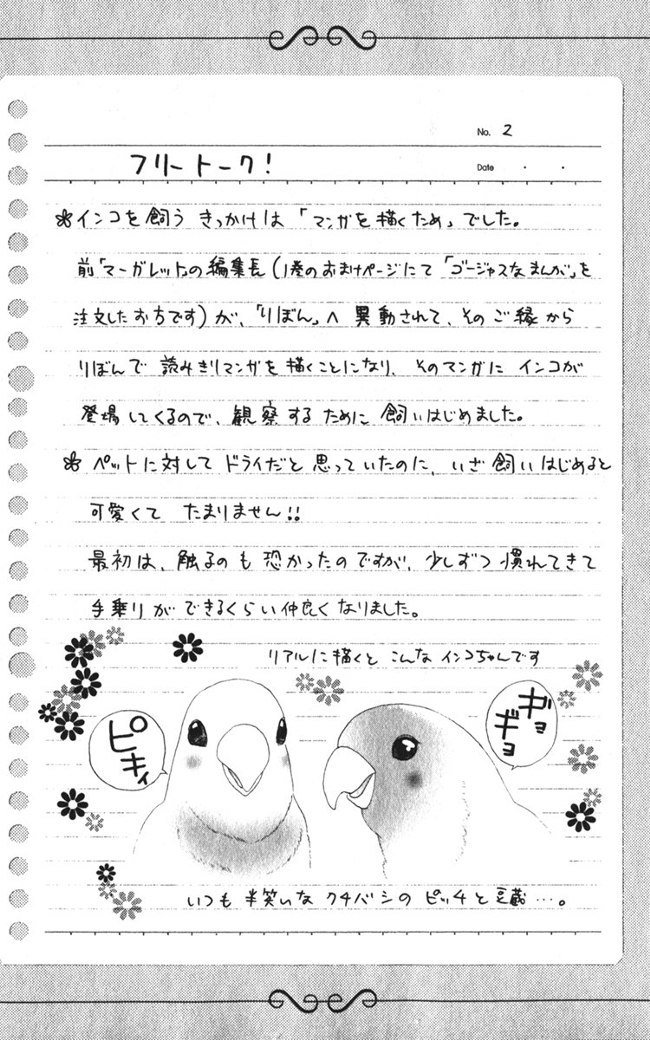 No. 2
フリートーク！
Date ・ ・
❀インコを飼うきっかけは「マンガを描くため」でした。
前「マーガレット」の編集長（1巻のおまけページにて「ゴージャスなまんが」を
注文したお方です）が、「りぼん」へ異動されて、そのご縁から
りぼんで読みきりマンガを描くことになり、そのマンガにインコが
登場してくるので、観察するために飼いはじめました。
❀ペットに対してドライだと思っていたのに、いざ飼いはじめると
可愛くてたまりません!!
最初は、触るのも恐かったのですが、少しずつ慣れてきて
手乗りができるくらい仲良くなりました。
リアルに描くとこんなインコちゃんです
ピキィ
ギョギョ
いつも半笑いなクチバシのピッチと豆蔵…。